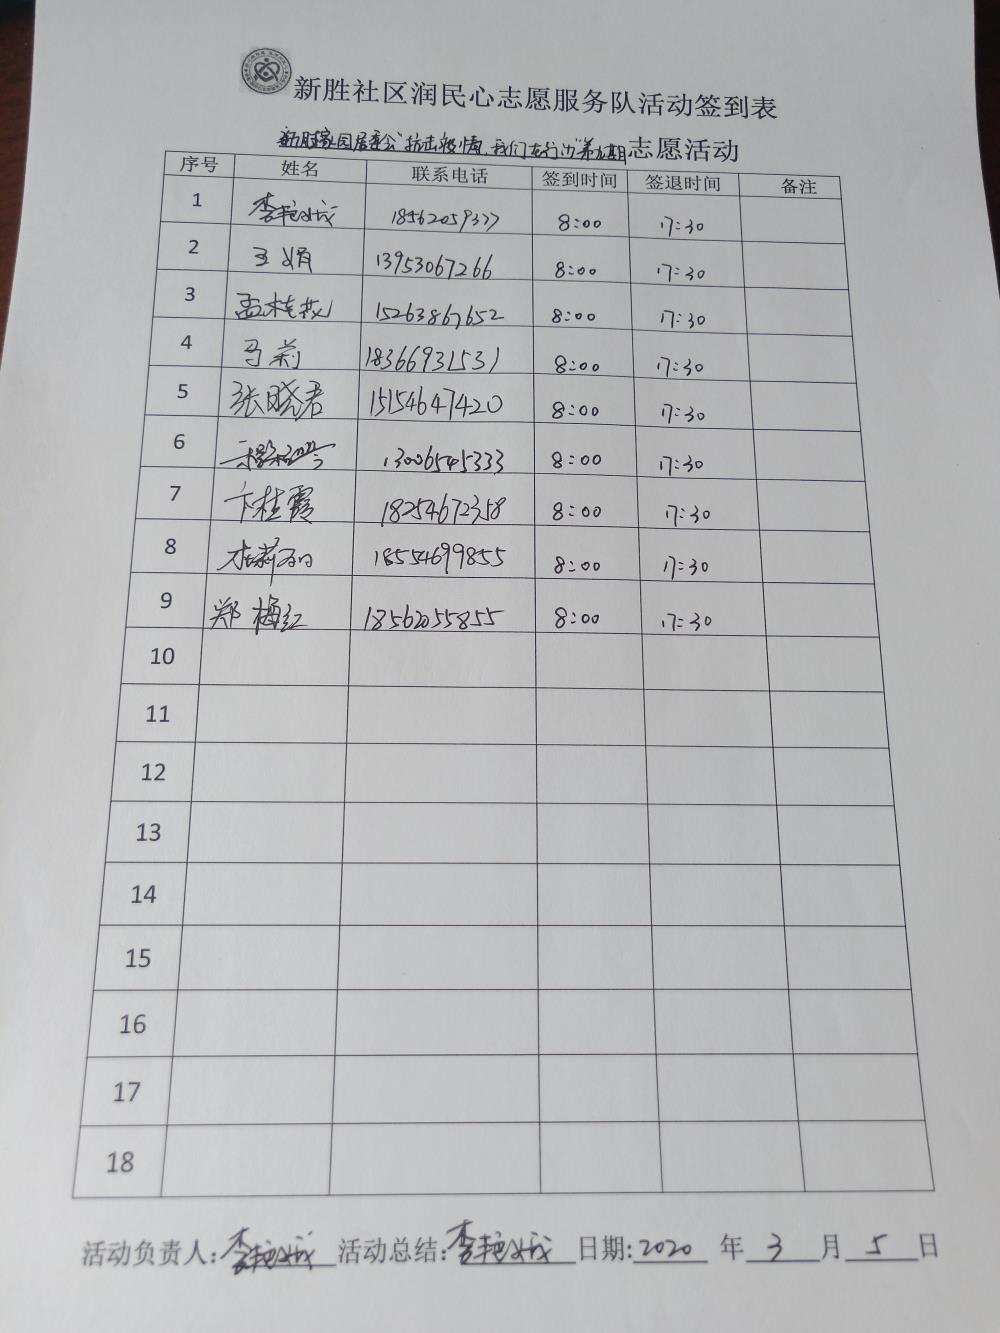 新胜社区润民心志愿服务队活动签到表
新胜家园居委会"抗击疫情,我们在行动"第九期志愿活动
序号 姓名 联系电话 签到时间 签退时间 备注
1 李艳城 18562059377 8:00 17:30
2 王娟 13953067266 8:00 17:30
3 孟桂 15263867652 8:00 17:30
4 马莉 18366931531 8:00 17:30
5 张晓君 15154647420 8:00 17:30
6 13006545333 8:00 17:30
7 卞桂霞 18254672358 8:00 17:30
8 18554699855 8:00 17:30
9 郑梅红 18562055855 8:00 17:30
10
11
12
13
14
15
16
17
18
活动负责人:李艳城 活动总结:李艳城 日期:2020 年 3 月 5 日